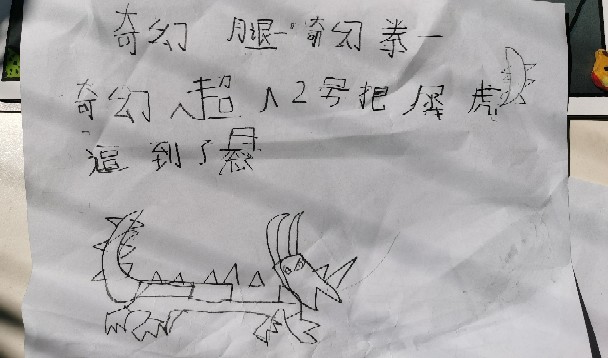 奇幻 腿一 奇幻 拳一
奇幻人超人2号把犀虎
逼到了悬